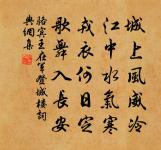 城上風威冷
江中水氣寒
戎衣何日定
歌舞入長安
駱賓王在軍登城樓詞
典網集